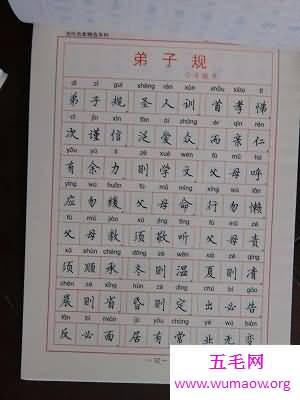 弟子规
dì zǐ guī shèng rén xùn shǒu xiào tì
弟子规 圣人训 首孝悌
cì jǐn xìn fàn ài zhòng ér qīn rén
次谨信 泛爱众 而亲仁
yǒu yú lì zé xué wén fù mǔ hū
有余力 则学文 父母呼
yìng wù huǎn fù mǔ mìng xíng wù lǎn
应勿缓 父母命 行勿懒
fù mǔ jiào xū jìng tīng fù mǔ zé
父母教 须敬听 父母责
xū shùn chéng dōng zé wēn xià zé qìng
须顺承 冬则温 夏则凊
chén zé xǐng hūn zé dìng chū bì gào
晨则省 昏则定 出必告
fǎn bì miàn jū yǒu cháng yè wú biàn
反必面 居有常 业无变
五毛网
www.wumaow.org